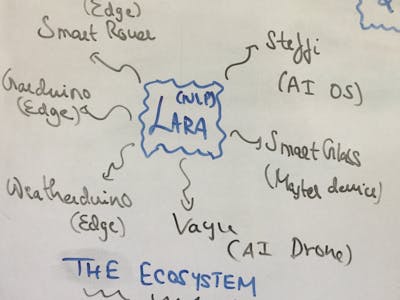 (Edge)
Smart Rover
Steffi
(AI OS)
Gharduino
(Edge)
(NLP)
LARA
Smart Glass
(Master device)
Weatherduino
(Edge)
Vayu
(AI Drone)
THE ECOSYSTEM